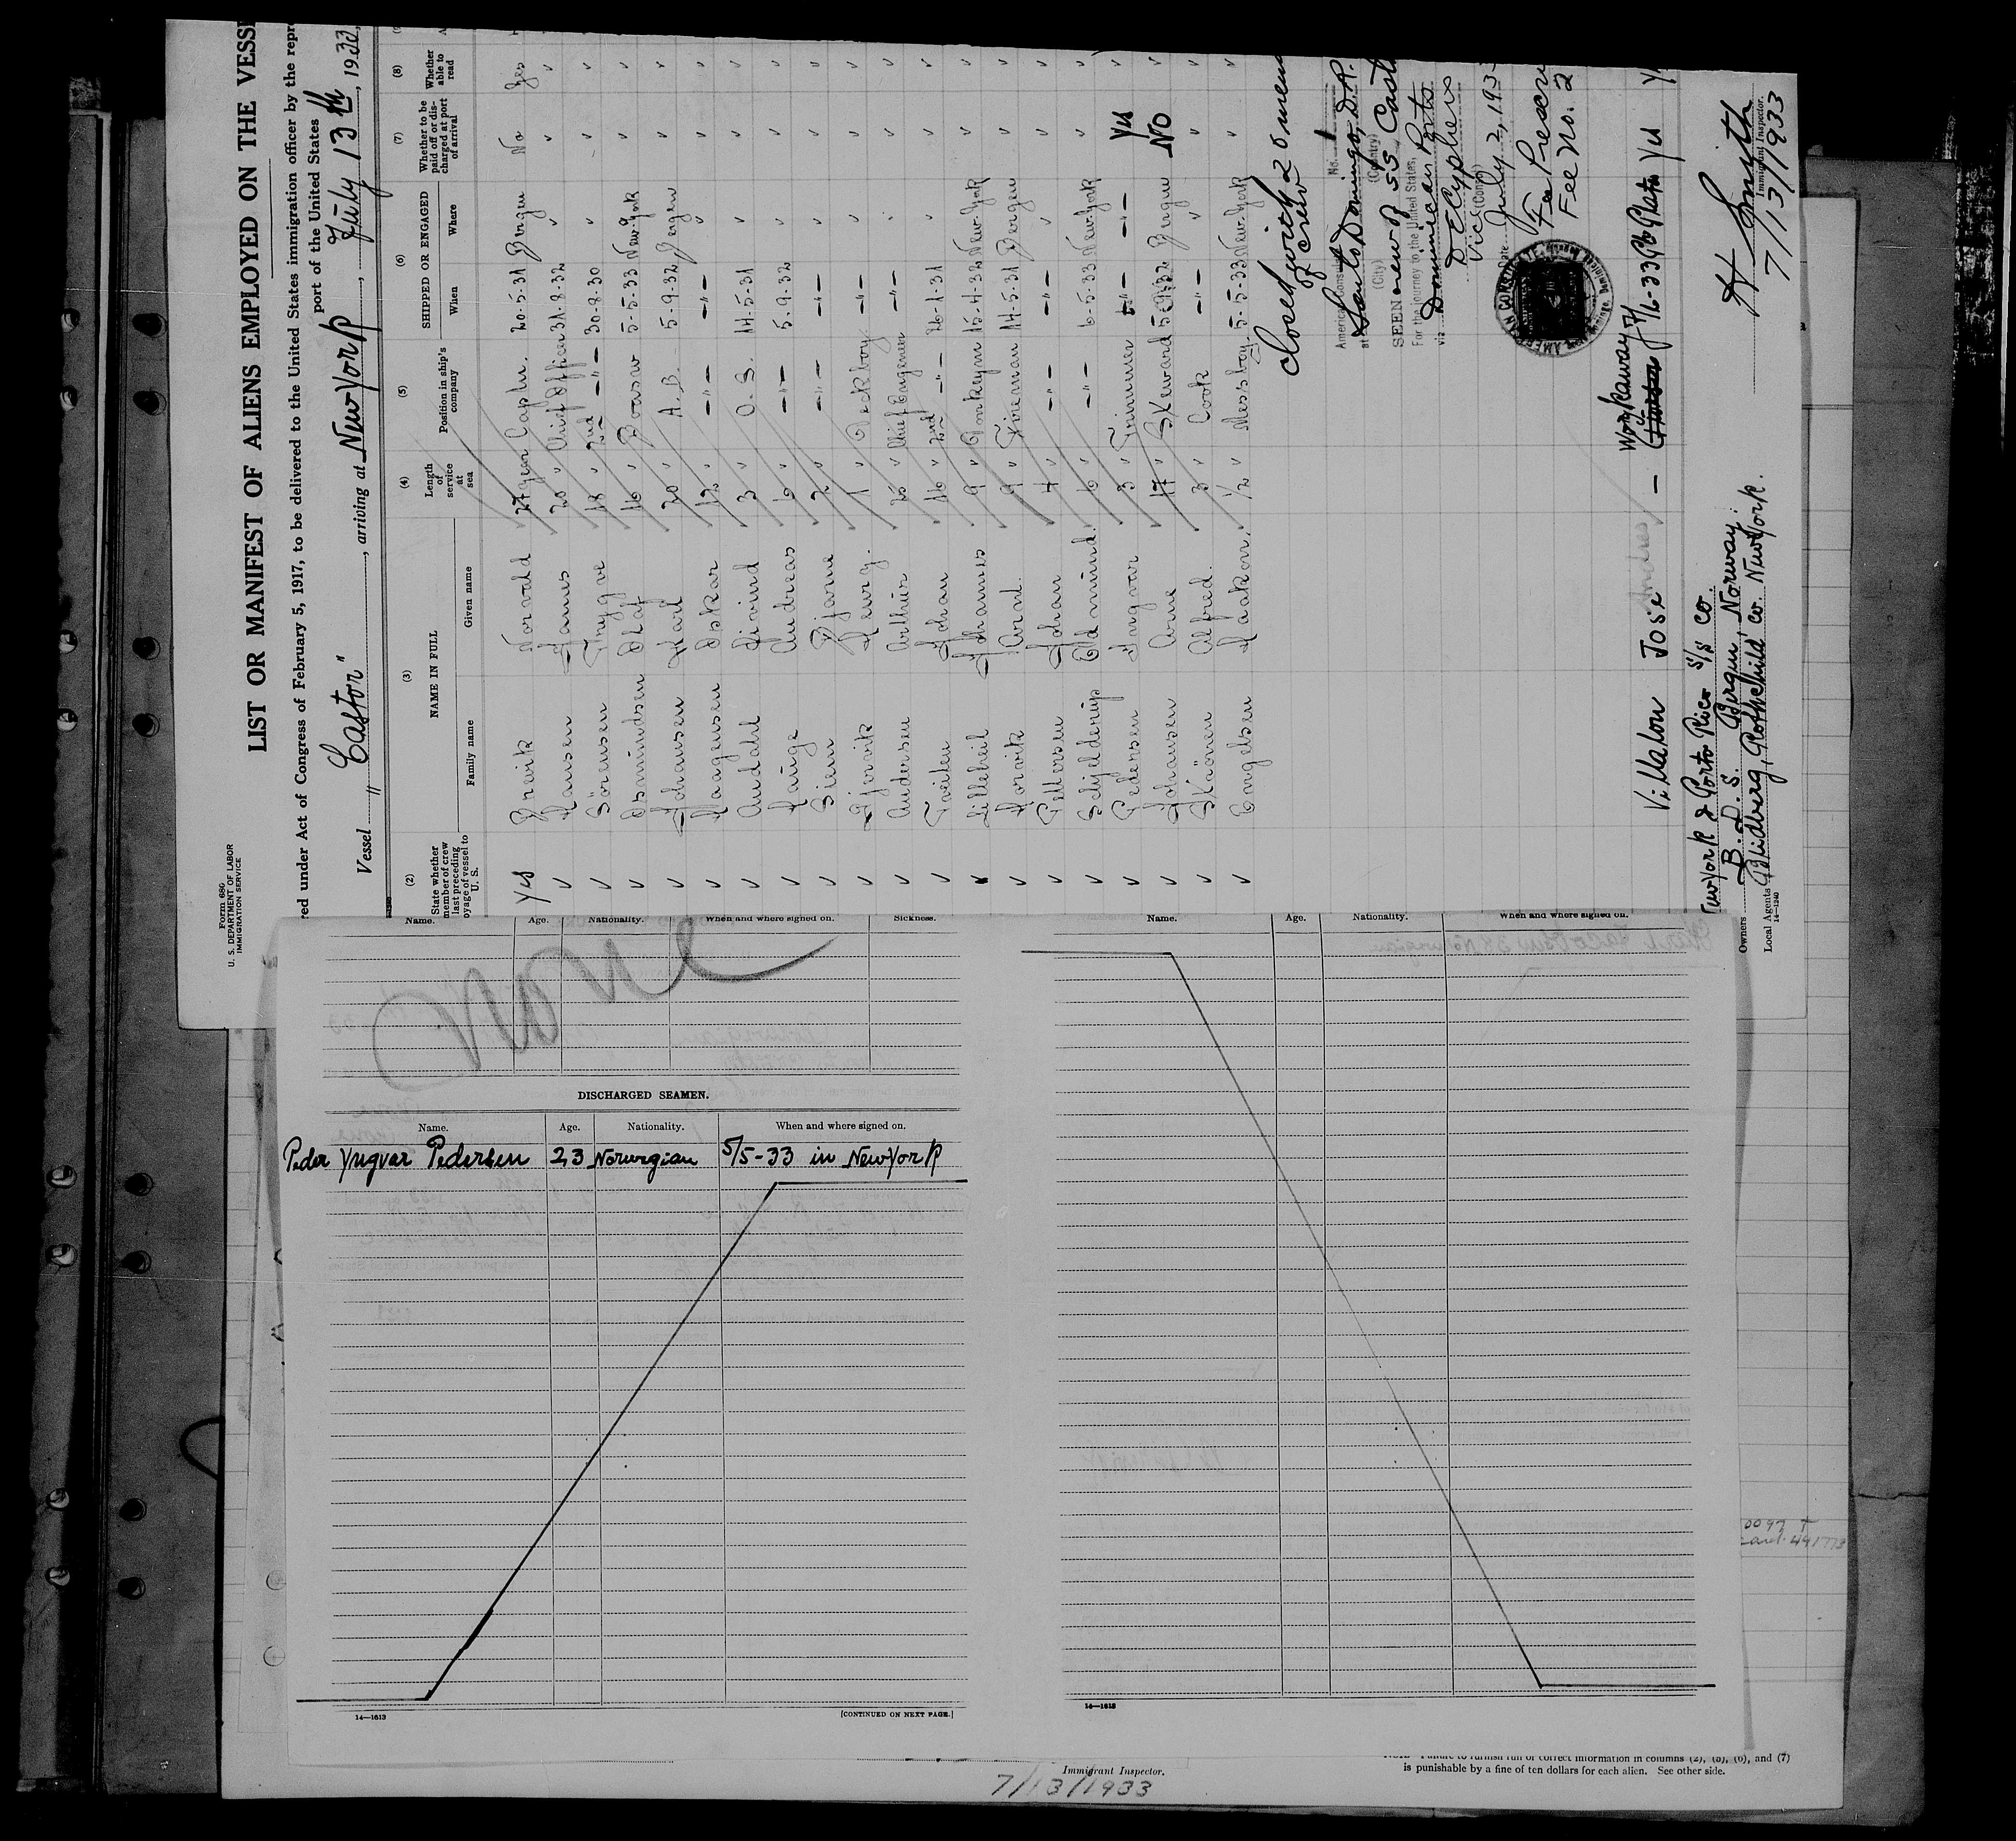 Form 680
U. S. DEPARTMENT OF LABOR
IMMIGRATION SERVICE
LIST OR MANIFEST OF ALIENS EMPLOYED ON THE VESS
red under Act of Congress of February 5, 1917, to be delivered to the United States immigration officer by the repr
port of the United States
Vessel "Castor", arriving at New York, July 13th, 1933
(2) (3) (4) (5) (6) (7) (8)
State whether member of crew last preceding voyage of vessel to U. S.
NAME IN FULL
Family name Given name
Length of service at sea
Position in ship's company
SHIPPED OR ENGAGED
When Where
Whether to be paid off or discharged at port of arrival
Whether able to read
Yes Brevik Norvald 27 year Captn. 20-5-31 Bergen No Yes
✓ Hansen Hannes 20 " Chief Officer 31-8-32 " ✓ ✓
✓ Sörensen Trygve 18 " 2nd -"- 30-8-30 " ✓ ✓
✓ Osmundsen Olaf 16 " Boatsw 5-5-33 New-York ✓ ✓
✓ Johansen Karl 20 " A.B. 5-9-32 Bergen ✓ ✓
✓ Haagensen Oskar 12 " -"- -"- " ✓ ✓
✓ Aundahl Eivind 3 " O.S. 14-5-31 " ✓ ✓
✓ Hauge Andreas 6 " -"- 5-9-32 " ✓ ✓
✓ Siem Bjarne 2 " -"- -"- " ✓ ✓
✓ Georg. 1 " Deckboy -"- " ✓ ✓
✓ Andersen Arthur 25 " Chief Engeneer -"- " ✓ ✓
✓ Johan 16 " 2nd -"- 26-1-31 " ✓ ✓
✓ Lilleheil Johannes 9 " Donkeym 15-4-32 New-York ✓ ✓
✓ Horvik Arnt 9 " Fireman 14-5-31 Bergen ✓ ✓
✓ Pettersen Johan 7 " -"- -"- " ✓ ✓
✓ Schjelderup Edmund. 6 " -"- 6-5-33 New-York ✓ ✓
✓ Pedersen Ingvar 3 " Trimmer -"- -"- Yes ✓
✓ Johansen Arne 17 " Steward 5-9-32 Bergen No ✓
✓ Skaönen Alfred. 3 " Cook -"- " ✓ ✓
✓ Engelsen Haakon. 1/2 " Messboy 5-5-33 New-York ✓ ✓
Closed with 20 mem
of crew
American Consulate No. 1
at Santo Domingo, D.R.
(City) (Country)
SEEN crew of SS Cast
For the journey to the United States,
via Dominican Ports
Vice Consul
Date July 2, 193
Fee Prescri
Fee No. 2
AMERICAN CONSULATE
Villalon Jose — Workaway 7/12-33 Yes
New York & Porto Rico S/S Co.
Owners B.D.S. Bergen, Norway.
Local Agents Rothschild Co. New York.
14-1240
H Smith
Immigrant Inspector.
7/13/1933
Name. Age. Nationality. When and where signed on. Sickness.
None
DISCHARGED SEAMEN.
Name. Age. Nationality. When and where signed on.
Peder Yngvar Pedersen 23 Norwegian 5/5-33 in New York
14—1613
[CONTINUED ON NEXT PAGE.]
Name. Age. Nationality. When and where signed on.
14—1613
Immigrant Inspector.
7/13/1933
NOTE Failure to furnish full or correct information in columns (2), (5), (6), and (7)
is punishable by a fine of ten dollars for each alien. See other side.